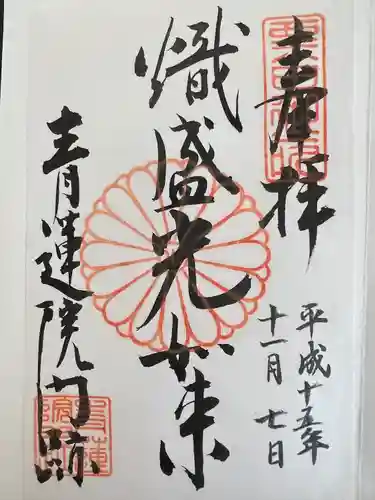 奉拝
平成十五年
十一月七日
熾盛光如来
青蓮院門跡